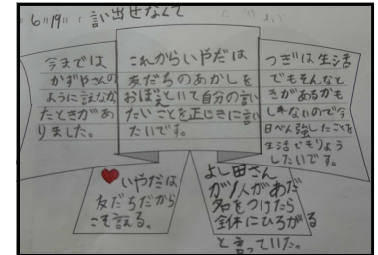 6/19 言い出せなくて
今までは
かずやさんの
ように言えなか
たときがあ
りました。
これからいやだは
友だちのあかしを
おぼえといて自分の言い
たいことを正じきに言い
たいです。
つぎは生活
でもそんなと
きがあるかも
しれないので今
日べん強したことを
生活でもりよう
したいです。
いやだは
友だちだから
こそ言える。
よし田さん
が1人があだ
名をつけたら
全体にひろがる
と言っていた。